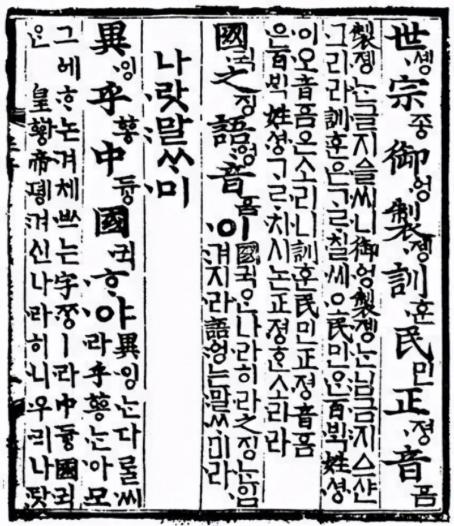 世솅宗종御엉製졩訓훈民민正졍音ᅙᅳᆷ
製졩는글지ᅀᅳᆯ씨니御엉製졩는님금지ᅀᅳ샨
그리라訓훈은ᄀᆞᄅᆞ칠씨오民민ᄋᆞᆫ百ᄇᆡᆨ姓셩
이오音ᅙᅳᆷ은소리니訓훈民민正졍音ᅙᅳᆷ
은百ᄇᆡᆨ姓셩ᄀᆞᄅᆞ치시논正졍ᄒᆞᆫ소리라
國귁之징語엉音ᅙᅳᆷ이國귁ᄋᆞᆫ나라히라之징는입
겨지라語엉는말ᄊᆞ미라
나랏말ᄊᆞ미
異잉乎ᅘᅩᆼ中듀ᇰ國귁ᄒᆞ야異잉는다ᄅᆞᆯ씨
라乎ᅘᅩᆼ는아모
그ᅌᅦᄒᆞ논겨체ᄡᅳ는字ᄍᆞᆼㅣ라中듀ᇰ國귁
ᄋᆞᆫ皇ᅘᅪᆼ帝뎽겨신나라히니우리나랏